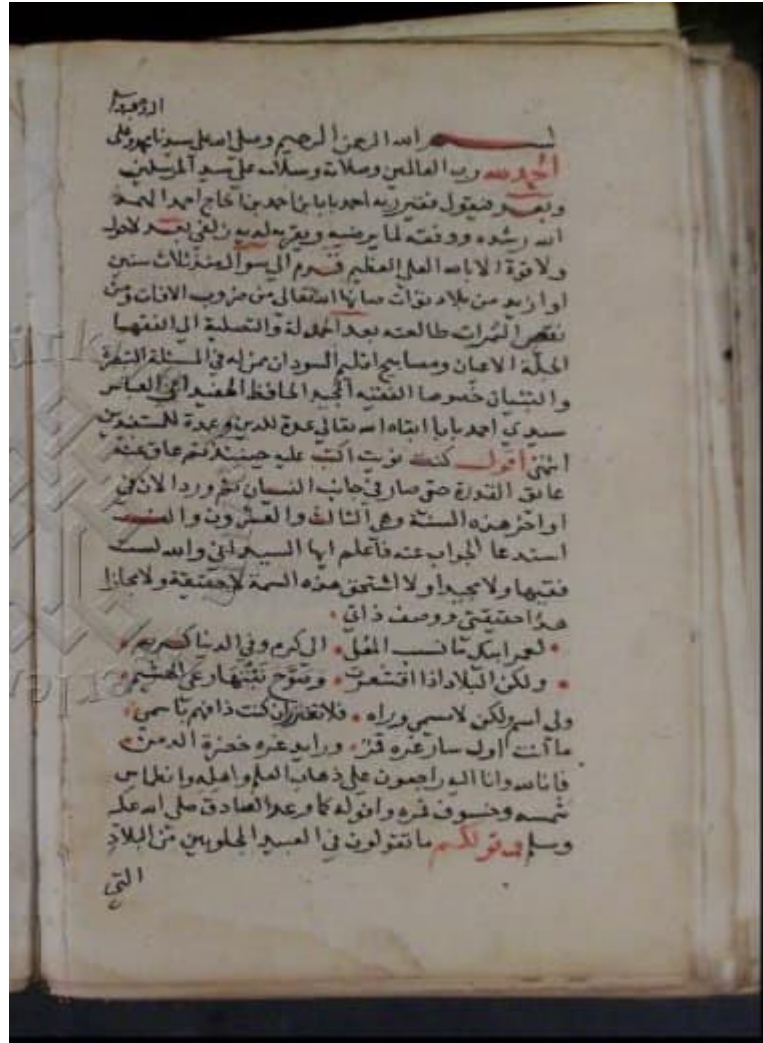 بسم الله الرحمن الرحيم وصلى الله على سيدنا محمد وعلى
الحمد لله رب العالمين وصلاة وسلاما على سيد المرسلين
وبعد فيقول فقير ربه احمد بابا بن احمد بن الحاج احمد
الله رشده ووفقه لما يرضيه ويقربه لديه زلفى بعد لاحول
ولا قوة الا بالله العلي العظيم قدم الي سوال منذ ثلاث سنين
او ازيد من بلاد توات صانها الله تعالى من ضروب الافات ومن
نقص الثمرات طالعته بعد الحمدلة والتصلية الى الفقها
الجلة الاعيان ومصابيح اقليم السودان بمن له في المسئلة التبصرة
والتبيان خصوصا الفقيه المجيد الحافظ الحفيد ابي العباس
سيدي احمد بابا ابقاه الله تعالى عمدة للدين وعدة للمستفدين
انتهى اقول كنت نويت اكتب عليه حينئذ ثم عاق عنه
عايق القدرة حتى صار في جانب النسيان ثم ورد الان في
اواخر هذه السنة وهي الثالث والعشرون والف
استدعا الجواب عنه فاعلم ايها السيد اني والله لست
فقيها ولا مجيدا ولا استحق هذه السمة لا حقيقة ولا مجازا
هذا حقيقتي ووصف ذاتي
لعمر ابيك ما نسب المعلى الى كرم وفي الدنيا كريم
ولكن البلاد اذا اقشعرت وصوح نبتها رعي الهشيم
ولي اسم ولكن لا مسمى وراه فلا تغترر ان كنت ذا فهم باسمي
ما انت اول سار غره قمر ورايد غره خضرة الدمن
فانا لله وانا اليه راجعون على ذهاب العلم واهله وانطماس
شمسه وخسوف قمره وافوله كما وعد الصادق صلى الله عليه
وسلم وقولكم ما تقولون في العبيد المجلوبين من البلاد
التي